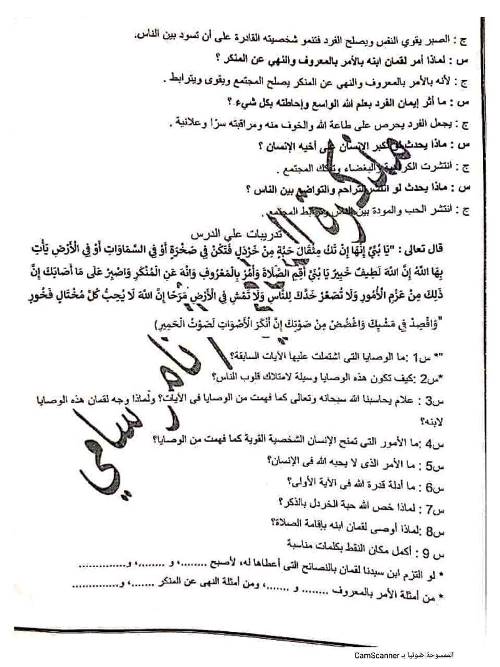 ج : الصبر يقوي النفس ويصلح الفرد فتنمو شخصيته القادرة على أن تسود بين الناس.
س : لماذا أمر لقمان ابنه بالأمر بالمعروف والنهي عن المنكر ؟
ج : لأنه بالأمر بالمعروف والنهي عن المنكر يصلح المجتمع ويقوى ويترابط .
س : ما أثر إيمان الفرد بعلم الله الواسع وإحاطته بكل شيء ؟
ج : يجعل الفرد يحرص على طاعة الله والخوف منه ومراقبته سرًا وعلانية .
س : ماذا يحدث لو تكبر الإنسان على أخيه الإنسان ؟
ج : انتشرت الكراهية والبغضاء وتفكك المجتمع .
س : ماذا يحدث لو انتشر التراحم والتواضع بين الناس ؟
ج : انتشر الحب والمودة بين الناس وترابط المجتمع .
تدريبات على الدرس
قال تعالى : "يَا بُنَيَّ إِنَّهَا إِن تَكُ مِثْقَالَ حَبَّةٍ مِنْ خَرْدَلٍ فَتَكُنْ فِي صَخْرَةٍ أَوْ فِي السَّمَاوَاتِ أَوْ فِي الْأَرْضِ يَأْتِ
بِهَا اللَّهُ إِنَّ اللَّهَ لَطِيفٌ خَبِيرٌ يَا بُنَيَّ أَقِمِ الصَّلَاةَ وَأْمُرْ بِالْمَعْرُوفِ وَانْهَ عَنِ الْمُنكَرِ وَاصْبِرْ عَلَى مَا أَصَابَكَ إِنَّ
ذَلِكَ مِنْ عَزْمِ الْأُمُورِ وَلَا تُصَعِّرْ خَدَّكَ لِلنَّاسِ وَلَا تَمْشِ فِي الْأَرْضِ مَرَحًا إِنَّ اللَّهَ لَا يُحِبُّ كُلَّ مُخْتَالٍ فَخُورٍ
"وَاقْصِدْ فِي مَشْيِكَ وَاغْضُضْ مِنْ صَوْتِكَ إِنَّ أَنْكَرَ الْأَصْوَاتِ لَصَوْتُ الْحَمِيرِ)
*" س1 :ما الوصايا التى اشتملت عليها الأيات السابقة؟
*س2 :كيف تكون هذه الوصايا وسيلة لامتلاك قلوب الناس؟
س3 : علام يحاسبنا الله سبحانه وتعالى كما فهمت من الوصايا فى الآيات؟ ولماذا وجه لقمان هذه الوصايا
لابنه؟
س4 :ما الأمور التى تمنح الإنسان الشخصية القوية كما فهمت من الوصايا؟
س5 : ما الأمر الذى لا يحبه الله فى الإنسان؟
س6 : ما أدلة قدرة الله فى الآية الأولى؟
س7 : لماذا خص الله حبة الخردل بالذكر؟
س8 :لماذا أوصى لقمان ابنه بإقامة الصلاة؟
س 9 : أكمل مكان النقط بكلمات مناسبة
* لو التزم ابن سيدنا لقمان بالنصائح التى أعطاها له، لأصبح ........، و ........، و..............
* من أمثلة الأمر بالمعروف ........ و .......، ومن أمثلة النهى عن المنكر .......، و............
الممسوحة ضوئيا بـ CamScanner